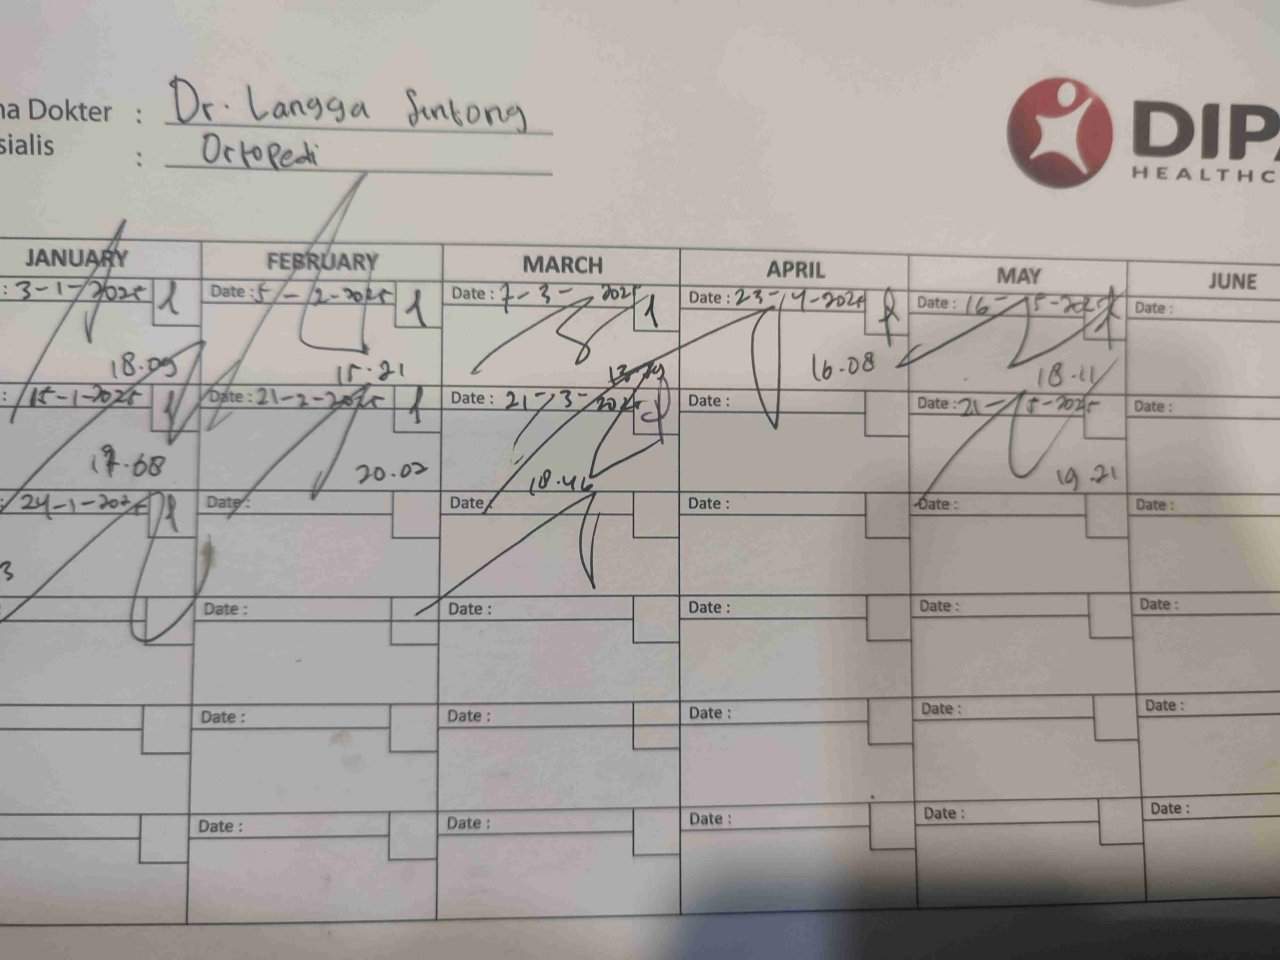 na Dokter : Dr. Langga Suntong
sialis : Ortopedi
DIPA
HEALTHC
JANUARY FEBRUARY MARCH APRIL MAY JUNE
: 3-1-2025 1 Date : 5-2-2025 1 Date : 7-3-2025 1 Date : 23-4-2025 Date : 16-5-2025 1 Date :
18.09 15.21 16.08 18.11
: 15-1-2025 1 Date : 21-2-2025 1 Date : 21-3-2025 Date : Date : 21-5-2025 Date :
20.02 18.46 19.21
: 24-1-2025 1 Date : Date : Date : Date : Date :
3
Date : Date : Date : Date : Date :
Date : Date : Date : Date : Date :
Date : Date : Date : Date : Date :